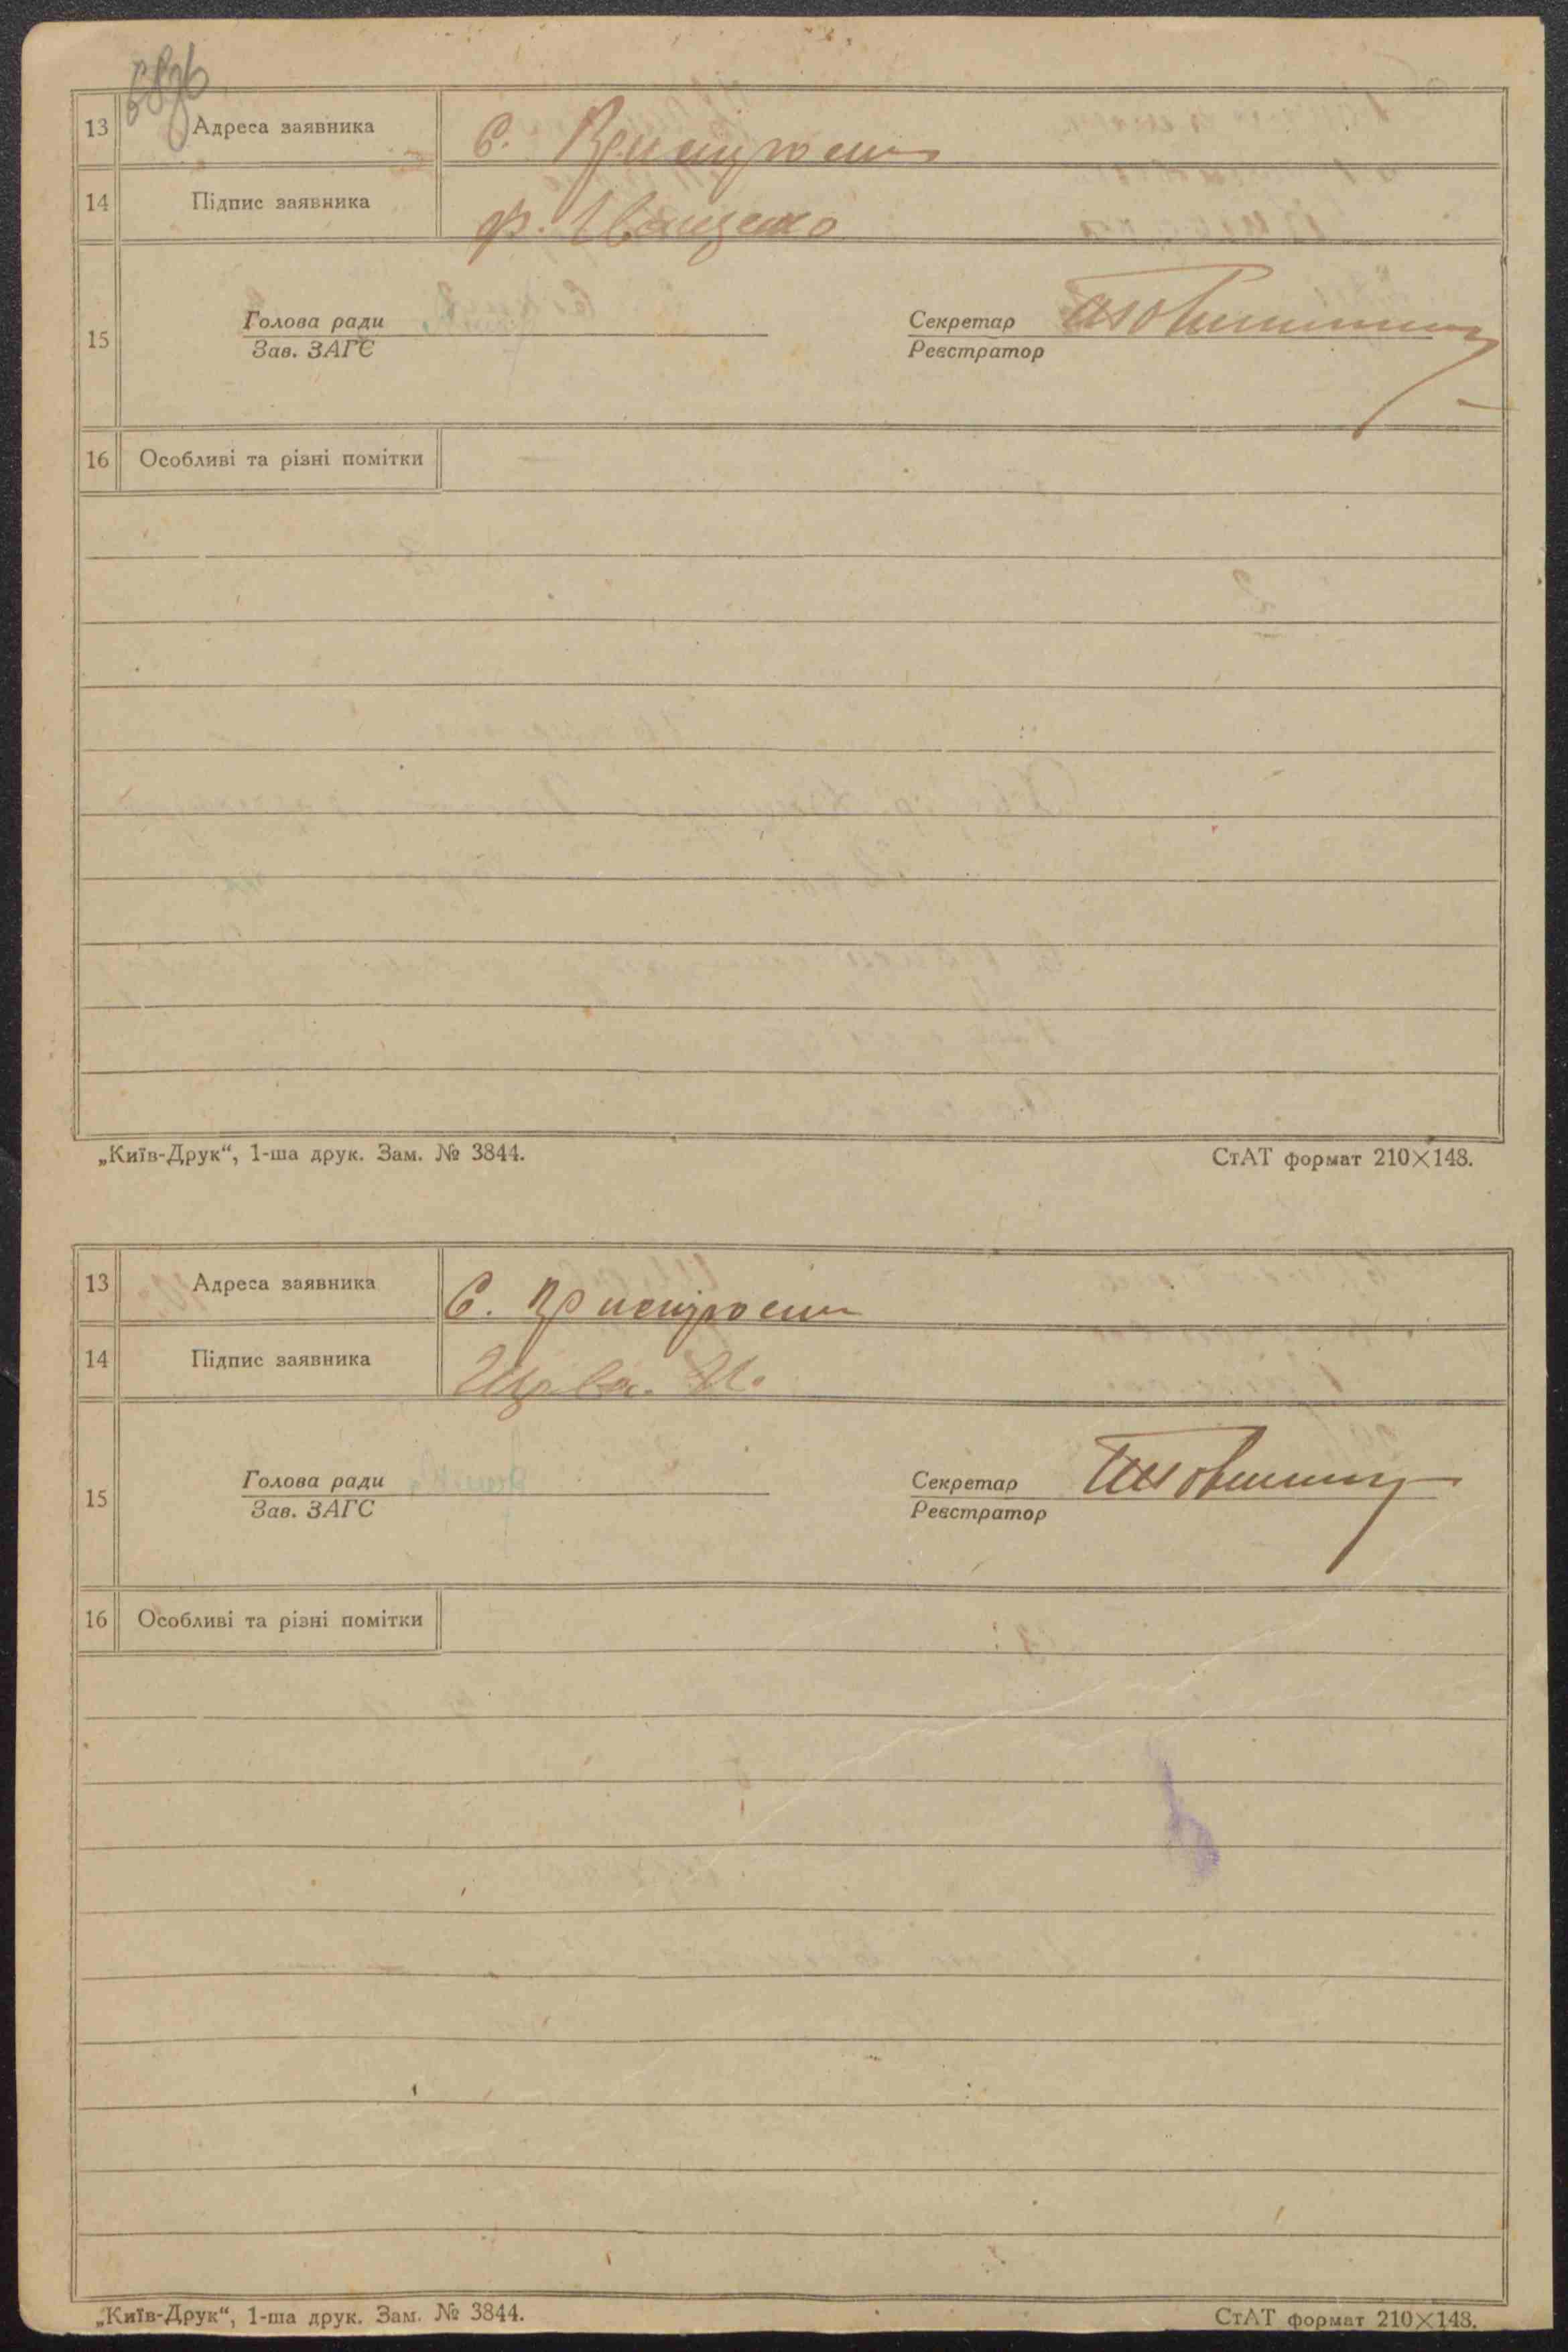 13 Адреса заявника С.
14 Підпис заявника Ф. Іващенко
15 Голова ради Секретар
Зав. ЗАГС Реєстратор
16 Особливі та різні помітки
„Київ-Друк“, 1-ша друк. Зам. № 3844. СтАТ формат 210×148.
13 Адреса заявника С.
14 Підпис заявника
15 Голова ради Секретар
Зав. ЗАГС Реєстратор
16 Особливі та різні помітки
„Київ-Друк“, 1-ша друк. Зам. № 3844. СтАТ формат 210×148.